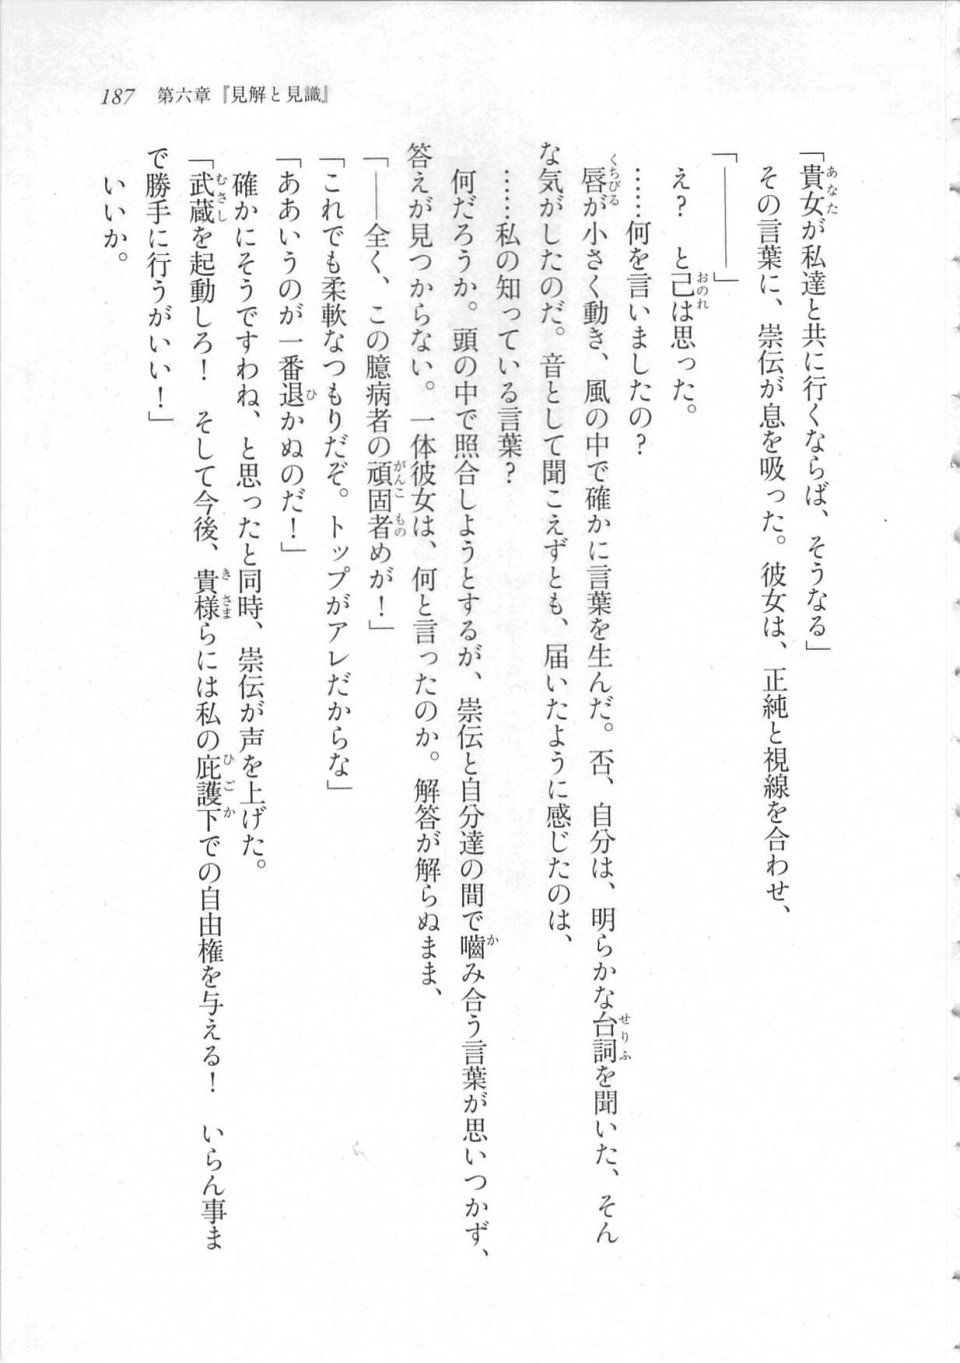 187 第六章『見解と見識』
「貴女が私達と共に行くならば、そうなる」
その言葉に、崇伝が息を吸った。彼女は、正純と視線を合わせ、
「―――」
え？　と己は思った。
……何を言いましたの？
唇が小さく動き、風の中で確かに言葉を生んだ。否、自分は、明らかな台詞を聞いた、そん
な気がしたのだ。音として聞こえずとも、届いたように感じたのは、
……私の知っている言葉？
何だろうか。頭の中で照合しようとするが、崇伝と自分達の間で嚙み合う言葉が思いつかず、
答えが見つからない。一体彼女は、何と言ったのか。解答が解らぬまま、
「――全く、この臆病者の頑固者めが！」
「これでも柔軟なつもりだぞ。トップがアレだからな」
「ああいうのが一番退かぬのだ！」
確かにそうですわね、と思ったと同時、崇伝が声を上げた。
「武蔵を起動しろ！　そして今後、貴様らには私の庇護下での自由権を与える！　いらん事ま
で勝手に行うがいい！」
いいか。